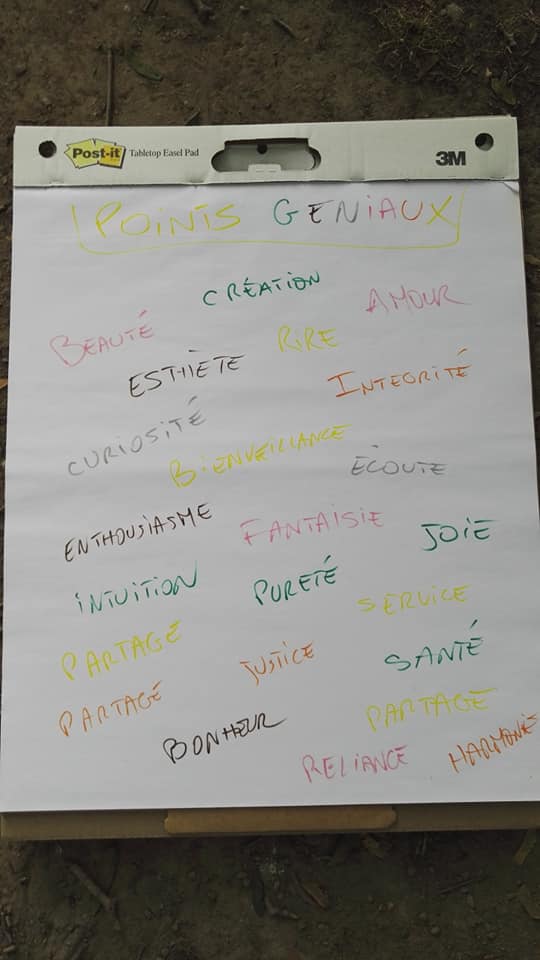 Post-it Tabletop Easel Pad 3M
POINTS GENIAUX
CRÉATION
AMOUR
BEAUTÉ
RIRE
ESTHÈTE
INTEGRITÉ
CURIOSITÉ
BIENVEILLANCE
ÉCOUTE
ENTHOUSIASME
FANTAISIE
JOIE
INTUITION
PURETÉ
SERVICE
PARTAGE
JUSTICE
SANTÉ
PARTAGE
PARTAGE
BONHEUR
RELIANCE
HARMONIE